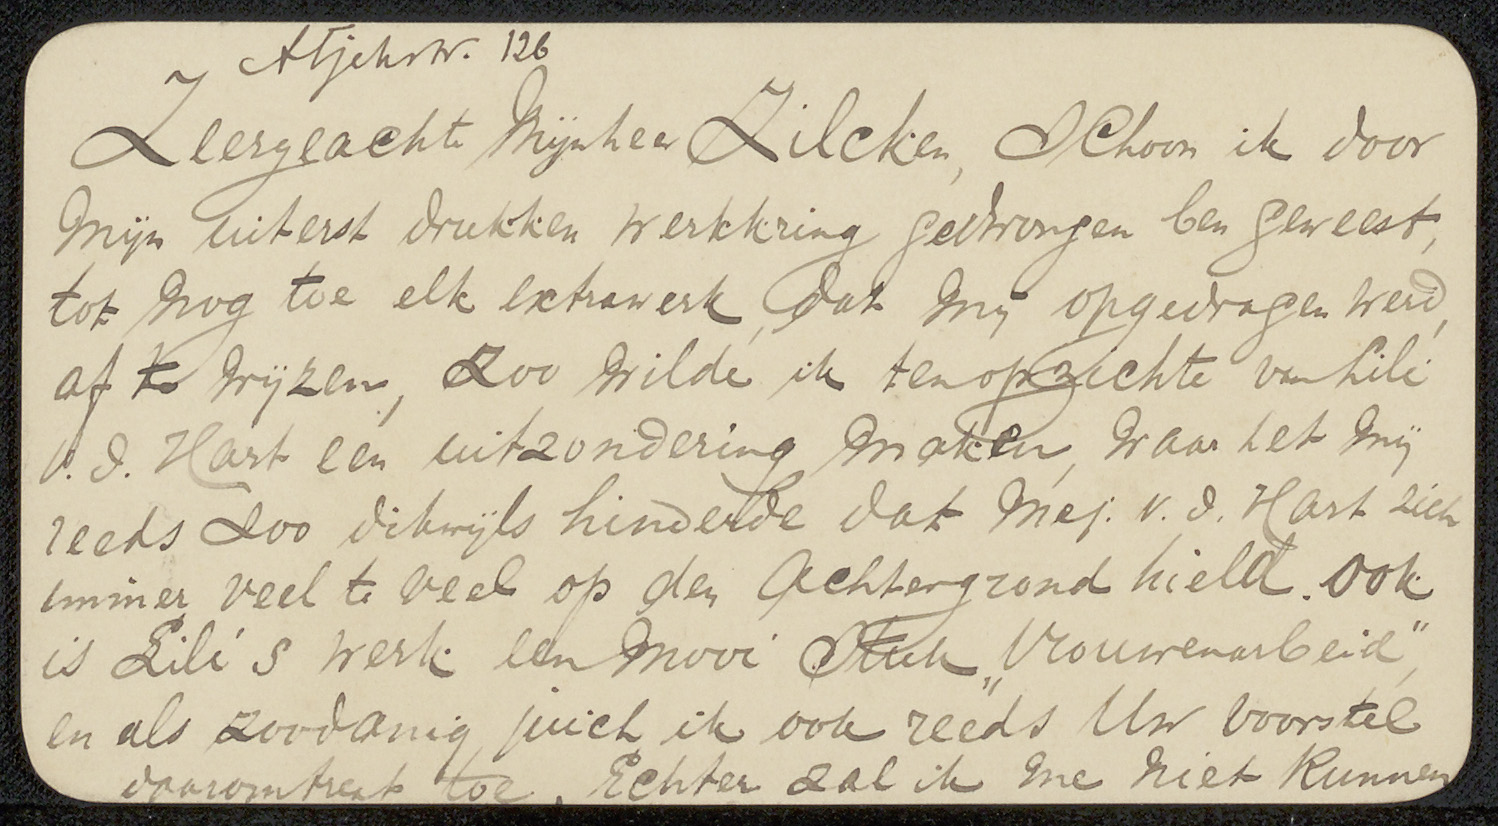 Atjehstr. 126
Zeergeachte Mijnheer Zilcken, Schoon ik door
mijn uiterst drukken werkkring gedwongen ben geweest,
tot nog toe elk extrawerk, dat mij opgedragen werd,
af te wijzen, zoo wilde ik ten opzichte van Lili
v. d. Hart een uitzondering maken, waar het mij
reeds zoo dikwijls hinderde dat Mej. v. d. Hart zich
immer veel te veel op den achtergrond hield. Ook
is Lili's werk een mooi stuk „Vrouwenarbeid",
en als zoodanig juich ik ook reeds Uw voorstel
daaromtrent toe. Echter zal ik me niet kunnen